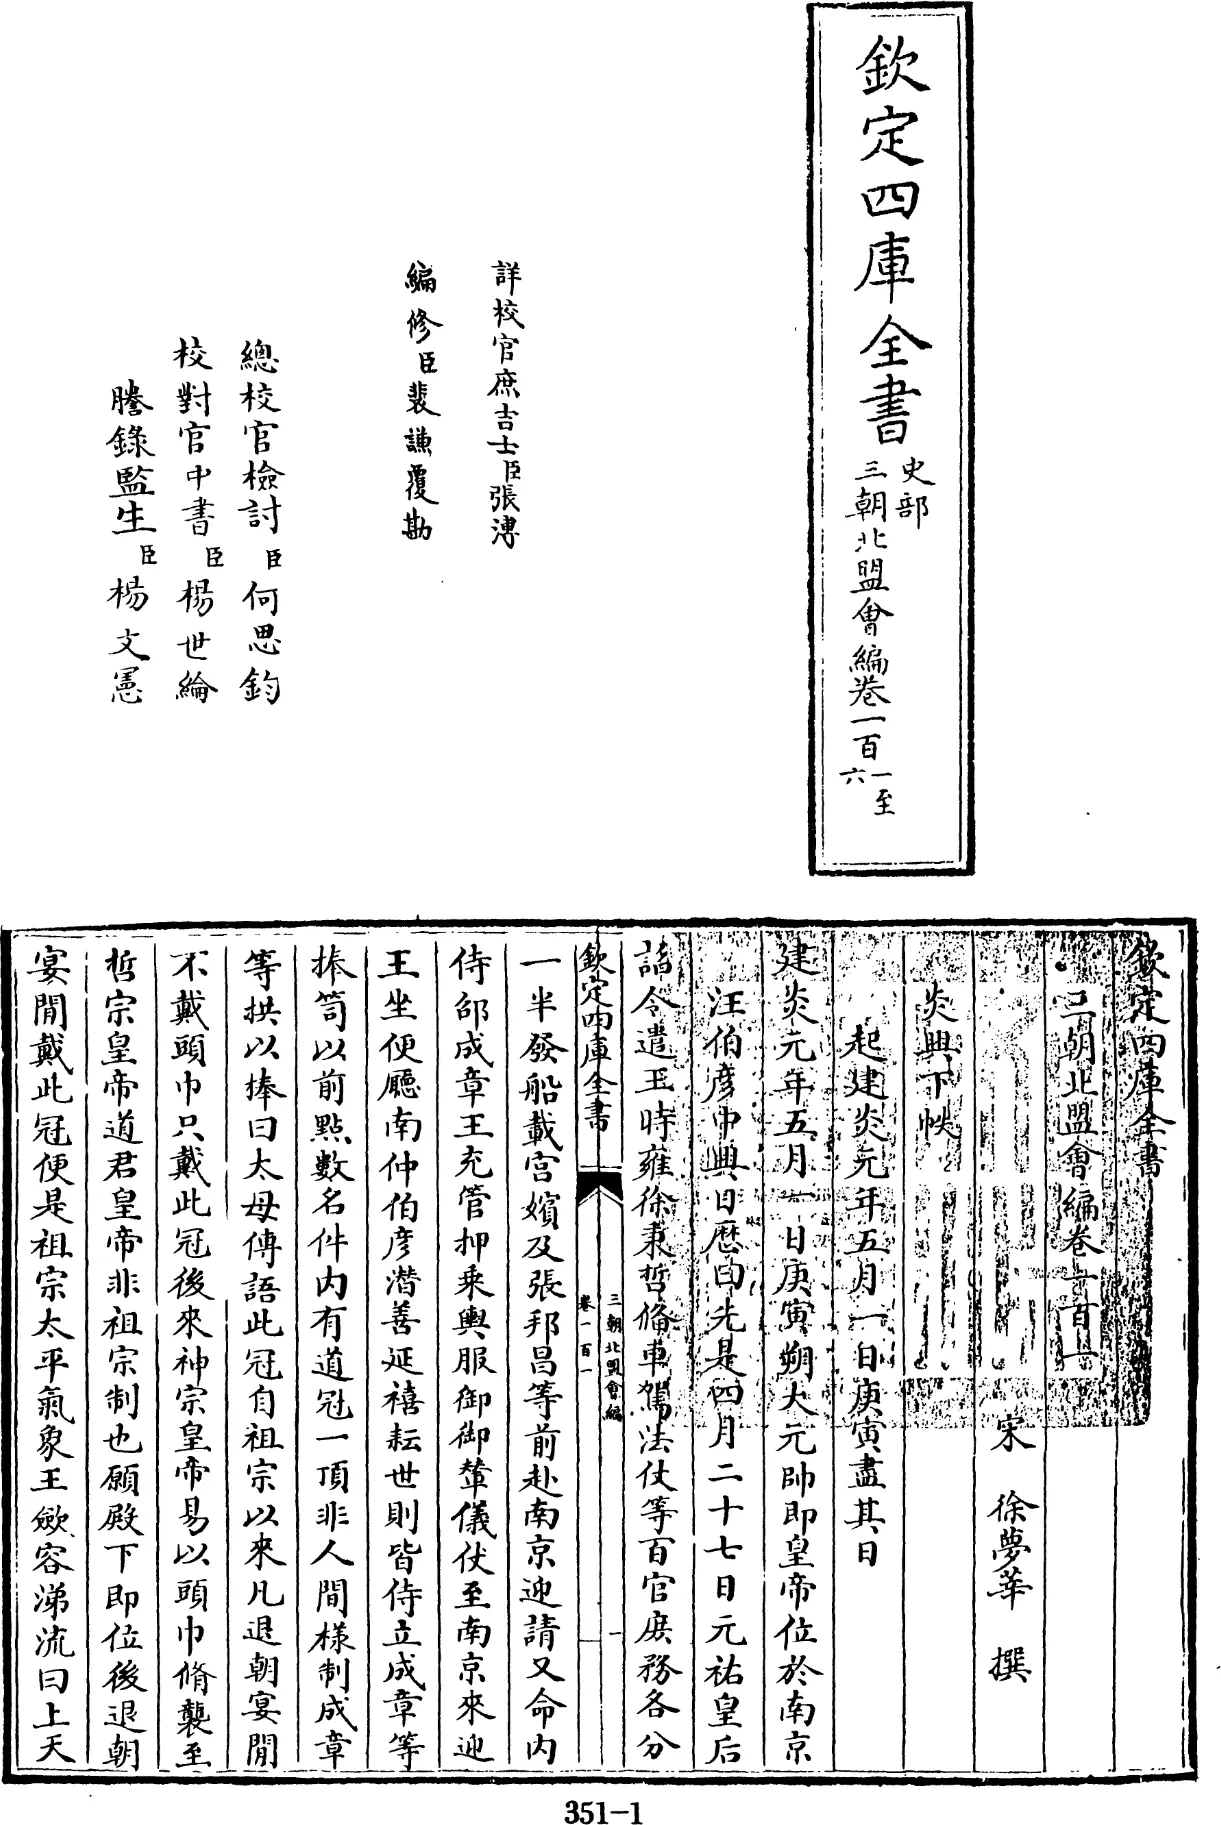 欽定四庫全書
史部
三朝北盟會編卷一百一至六
詳校官庶吉士臣張溥
編修臣裴謙覆勘
總校官檢討臣何思鈞
校對官中書臣楊世綸
謄錄監生臣楊文憲
欽定四庫全書
三朝北盟會編卷一百一
宋 徐夢莘 撰
炎興下帙
起建炎元年五月一日庚寅盡其日
建炎元年五月一日庚寅朔大元帥即皇帝位於南京
汪伯彦中興日厯曰先是四月二十七日元祐皇后
詣令遣王時雍徐秉哲備車駕法仗等百官庶務各分
欽定四庫全書
三朝北盟會編
卷一百一
一
一半發船載宫嬪及張邦昌等前赴南京迎請又命内
侍邵成章王充管押乘輿服御御輦儀仗至南京來迎
王坐便廳南仲伯彦潛善延禧耘世則皆侍立成章等
捧笥以前點數名件内有道冠一頂非人間様制成章
等拱以捧曰太母傳語此冠自祖宗以來凡退朝宴閒
不戴頭巾只戴此冠後來神宗皇帝易以頭巾脩襲至
哲宗皇帝道君皇帝非祖宗制也願殿下即位後退朝
宴閒戴此冠便是祖宗太平氣象王斂容涕流曰上天
351-1